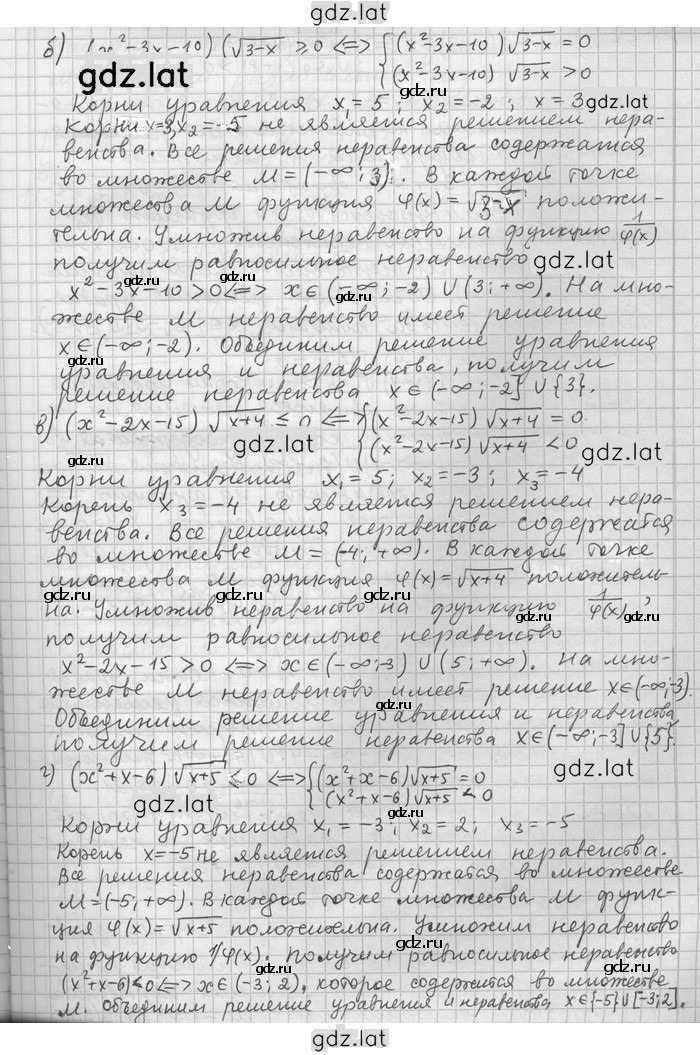 gdz.lat
б) (x²-3x-10)(√3-x ≥ 0 <=> {(x²-3x-10)√3-x = 0
{(x²-3x-10) √3-x > 0
gdz.lat
Корни уравнения x₁ = 5; x₂ = -2; x = 3 gdz.lat
Корни x=3, x₂ = -5 не является решением нера-
венства. Все решения неравенства содержатся
во множестве M = (-∞; 3). В каждой точке
множества M функция φ(x) = √3-x положи-
тельна. Умножив неравенство на функцию 1/φ(x)
получим равносильное неравенство
gdz.lat
x²-3x-10 > 0 <=> x∈(-∞;-2) ∪ (3;+∞). На мно-
жестве M неравенство имеет решение
x∈(-∞;-2). Объединим решение уравнения
уравнения и неравенства, получим
решение неравенства x∈(-∞;-2] ∪ {3}.
в) (x²-2x-15) √x+4 ≤ 0 <=> {(x²-2x-15) √x+4 = 0
{(x²-2x-15) √x+4 < 0
gdz.lat gdz.lat
Корни уравнения x₁ = 5; x₂ = -3; x₃ = -4
Корень x₃ = -4 не является решением нера-
венства. Все решения неравенства содержатся
во множестве M = (-4; +∞). В каждой точке
gdz.lat gdz.lat
множества M функция φ(x) = √x+4 положитель-
на. Умножив неравенство на функцию 1/φ(x),
gdz.lat
получим равносильное неравенство
x²-2x-15 > 0 <=> x∈(-∞;-3) ∪ (5;+∞). На мно-
gdz.lat gdz.lat
жестве M неравенство имеет решение x∈(-∞;-3).
Объединим решение уравнения и неравенства
получим решение неравенства x∈(-∞;-3] ∪ {5}.
г) (x²+x-6) √x+5 ≤ 0 <=> {(x²+x-6) √x+5 = 0
{(x²+x-6) √x+5 < 0
gdz.lat gdz.lat
Корни уравнения x₁ = -3; x₂ = 2; x₃ = -5
gdz.lat
Корень x=-5 не является решением неравенства.
Все решения неравенства содержатся во множестве
M=(-5;+∞). В каждой точке множества M функ-
gdz.lat
ция φ(x) = √x+5 положительна. Умножим неравенство
gdz.lat
на функцию 1/φ(x). Получим равносильное неравенство
gdz.lat
(x²+x-6) < 0 <=> x∈(-3; 2), которое содержится во множестве
gdz.lat
M. Объединим решение уравнения и неравенства x∈{-5} ∪ [-3;2].
gdz.lat